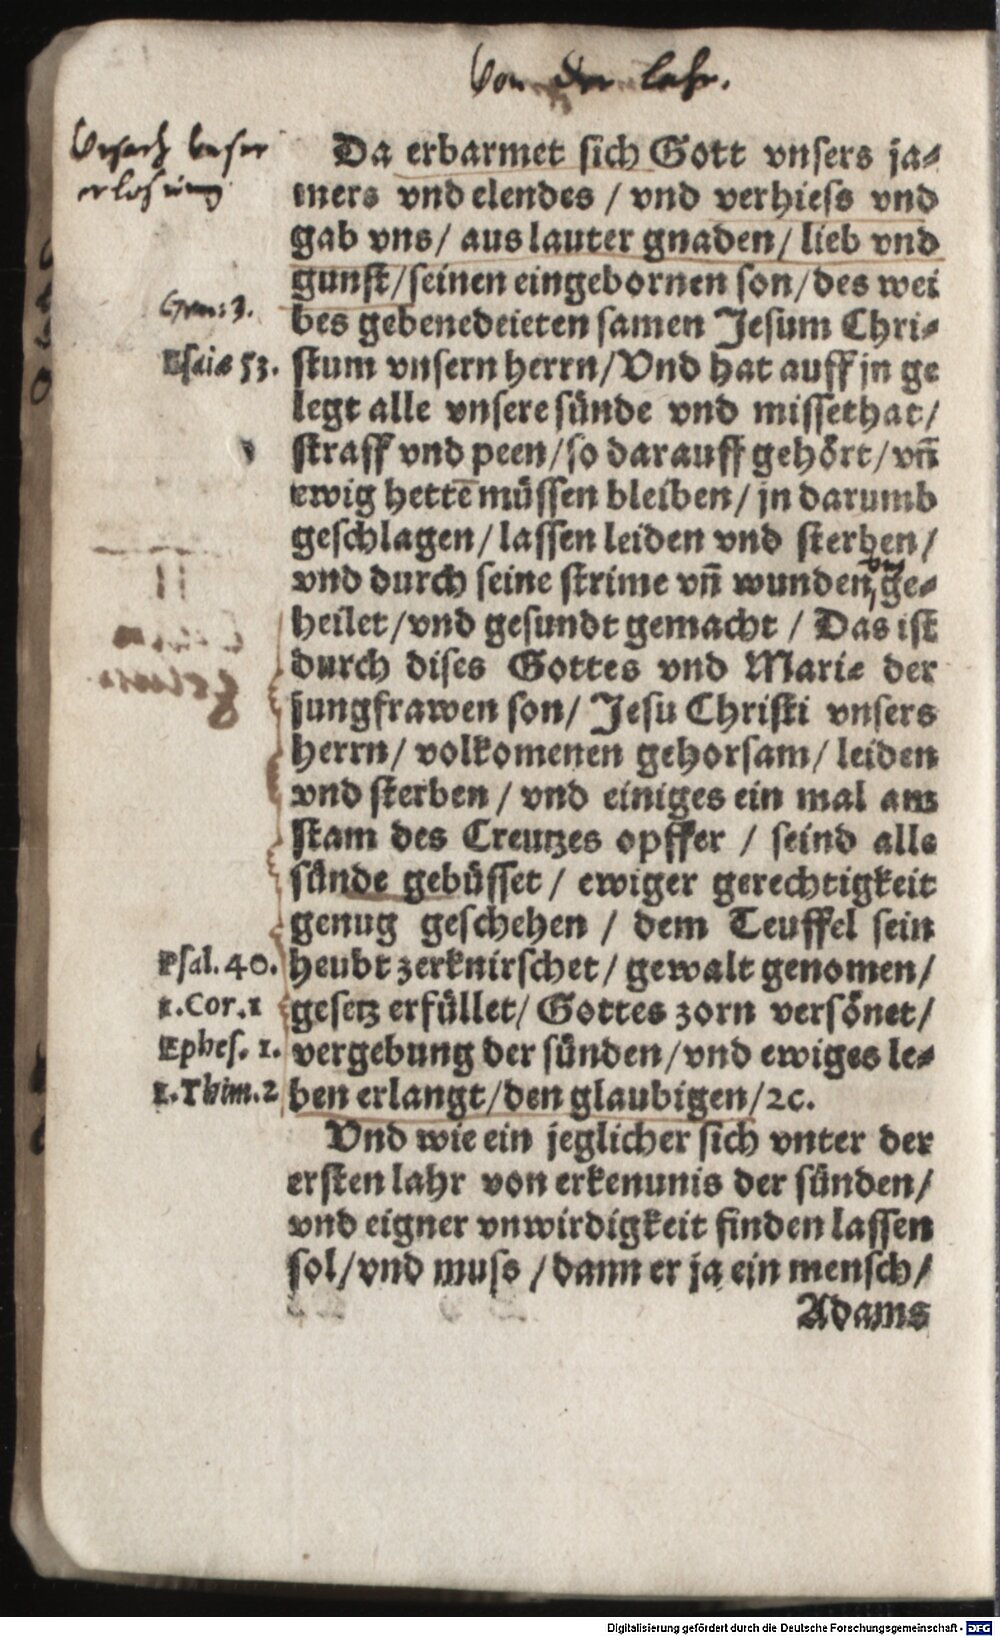 Von der lahr.
Vrsach vnser
erlösung
Da erbarmet sich Gott vnsers ja⸗
mers vnd elendes / vnd verhiess vnd
gab vns / aus lauter gnaden / lieb vnd
gunst / seinen eingebornen son / des wei
Gen: 3.
bes gebenedeieten samen Jesum Chri⸗
Esaiæ 53.
stum vnsern herrn / Vnd hat auff jn ge
legt alle vnsere sünde vnd missethat /
straff vnd peen / so darauff gehört / vñ
ewig hettē müssen bleiben / jn darumb
geschlagen / lassen leiden vnd sterben /
vnd durch seine strime vñ wunden vns ge⸗
heilet / vnd gesundt gemacht / Das ist
durch dises Gottes vnd Marie der
jungfrawen son / Jesu Christi vnsers
herrn / volkomenen gehorsam / leiden
vnd sterben / vnd einiges ein mal am
stam des Creutzes opffer / seind alle
sünde gebüsset / ewiger gerechtigkeit
genug geschehen / dem Teuffel sein
Psal. 40.
heubt zerknirschet / gewalt genomen /
1. Cor. 1
gesetz erfüllet / Gottes zorn versönet /
Ephes. 1.
vergebung der sünden / vnd ewiges le⸗
1. Thim. 2
ben erlangt / den glaubigen / ꝛc.
Vnd wie ein jeglicher sich vnter der
ersten lahr von erkenunis der sünden /
vnd eigner vnwirdigkeit finden lassen
sol / vnd muss / dann er ja ein mensch /
Adams
Digitalisierung gefördert durch die Deutsche Forschungsgemeinschaft - DFG